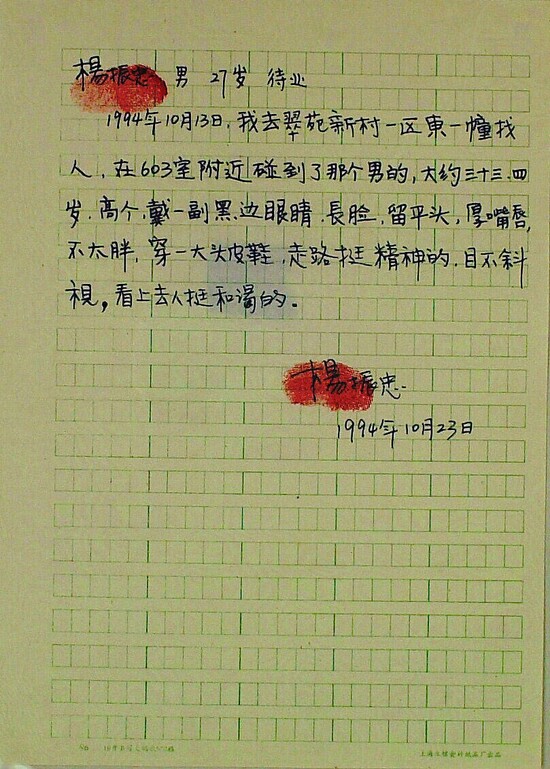 楊振忠 男 27岁 待业
1994年10月13日,我去翠苑新村一区東一幢找
人,在603室附近碰到了那个男的,大约三十三.四
岁.高个.戴一副黑边眼睛.長脸,留平头,厚嘴唇,
不太胖,穿一大头皮鞋,走路挺精神的.目不斜
視,看上去人挺和谒的。
楊振忠.
1994年10月23日